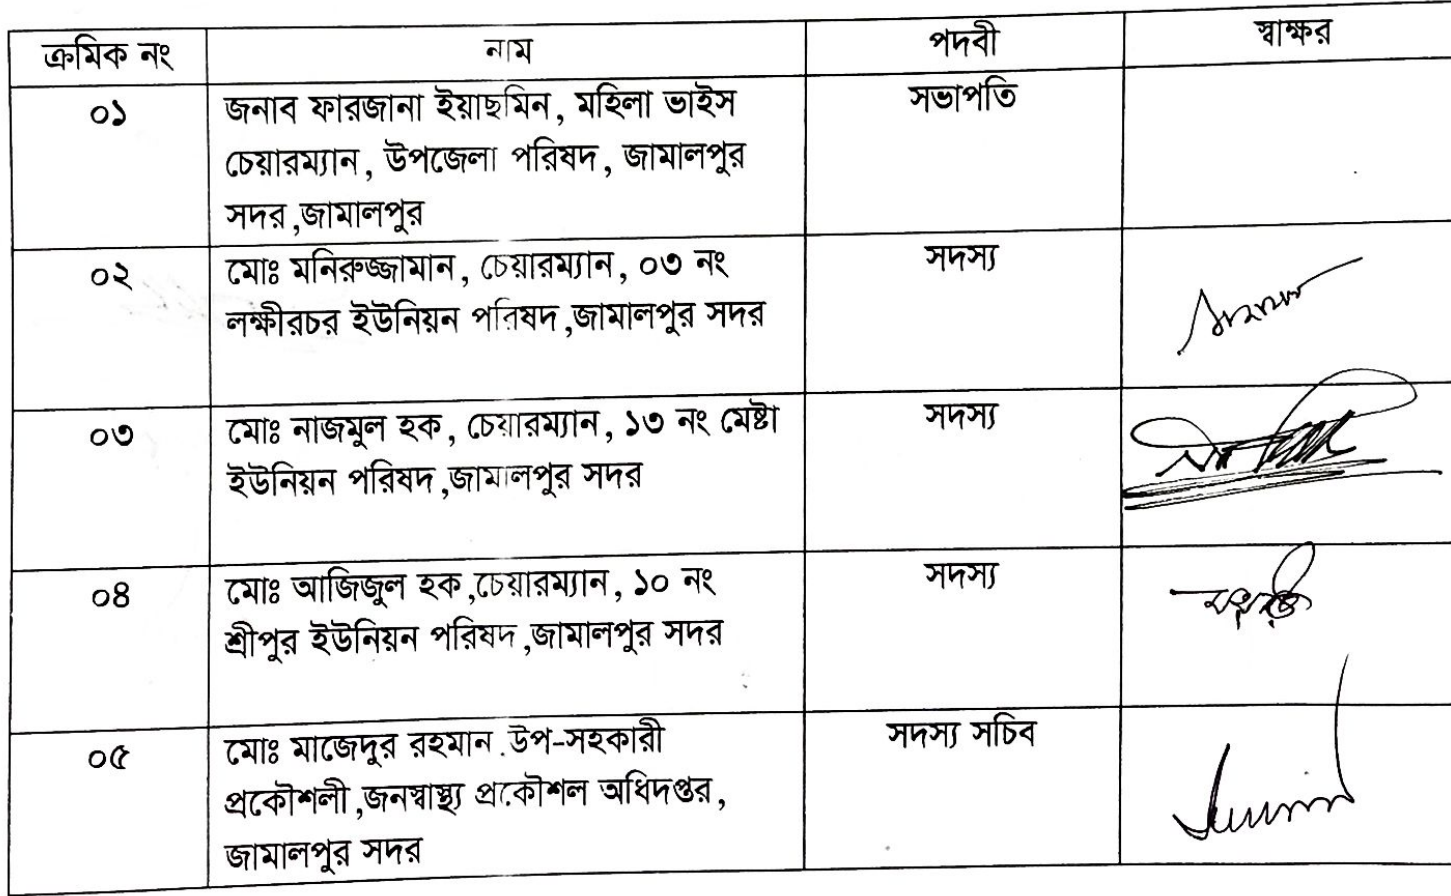 ক্রমিক নং নাম পদবী স্বাক্ষর
০১ জনাব ফারজানা ইয়াছমিন, মহিলা ভাইস সভাপতি
চেয়ারম্যান, উপজেলা পরিষদ, জামালপুর
সদর,জামালপুর
০২ মোঃ মনিরুজ্জামান, চেয়ারম্যান, ০৩ নং সদস্য
লক্ষীরচর ইউনিয়ন পরিষদ,জামালপুর সদর
০৩ মোঃ নাজমুল হক, চেয়ারম্যান, ১৩ নং মেষ্টা সদস্য
ইউনিয়ন পরিষদ,জামালপুর সদর
০৪ মোঃ আজিজুল হক,চেয়ারম্যান, ১০ নং সদস্য
শ্রীপুর ইউনিয়ন পরিষদ,জামালপুর সদর
০৫ মোঃ মাজেদুর রহমান.উপ-সহকারী সদস্য সচিব
প্রকৌশলী,জনস্বাস্থ্য প্রকৌশল অধিদপ্তর,
জামালপুর সদর